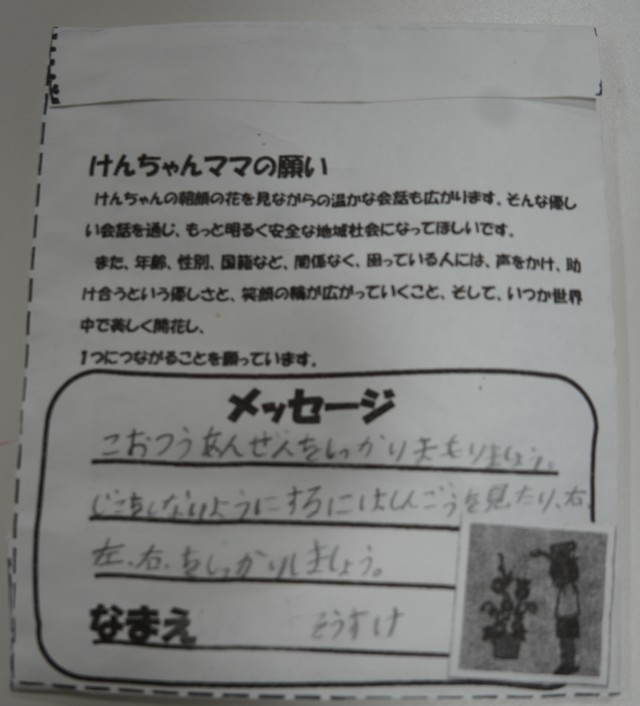 けんちゃんママの願い
けんちゃんの朝顔の花を見ながらの温かな会話も広がります。そんな優し
い会話を通じ、もっと明るく安全な地域社会になってほしいです。
また、年齢、性別、国籍など、関係なく、困っている人には、声をかけ、助
け合うという優しさと、笑顔の輪が広がっていくこと、そして、いつか世界
中で美しく開花し、
1つにつながることを願っています。
メッセージ
こおつうあんぜんをしっかりまもりましょう。
じこをしないようにするにはしんごうを見たり、右、
左、右、をしっかりしましょう。
なまえ そうすけ